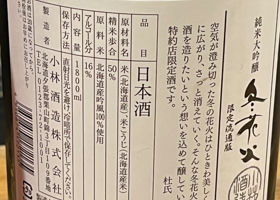 純米大吟醸
冬花火
限定流通版
空気が澄み切った冬の花火はひときわ美しく
に広がり、さっと消えていく。そんな冬花火
酒を造りたいという想いを込めて醸してい
特約店限定酒です。
杜氏
品目 日本酒
原材料名 米(北海道産)、米こうじ(北海道産米)
精米歩合 50%
原料米 北海道産吟風100%使用
アルコール分 16%
内容量 1800ml
保存方法 直射日光を避け、冷暗所で保存
製造者 小林酒造株式会社
北海道夕張郡栗山町錦3丁目109番地